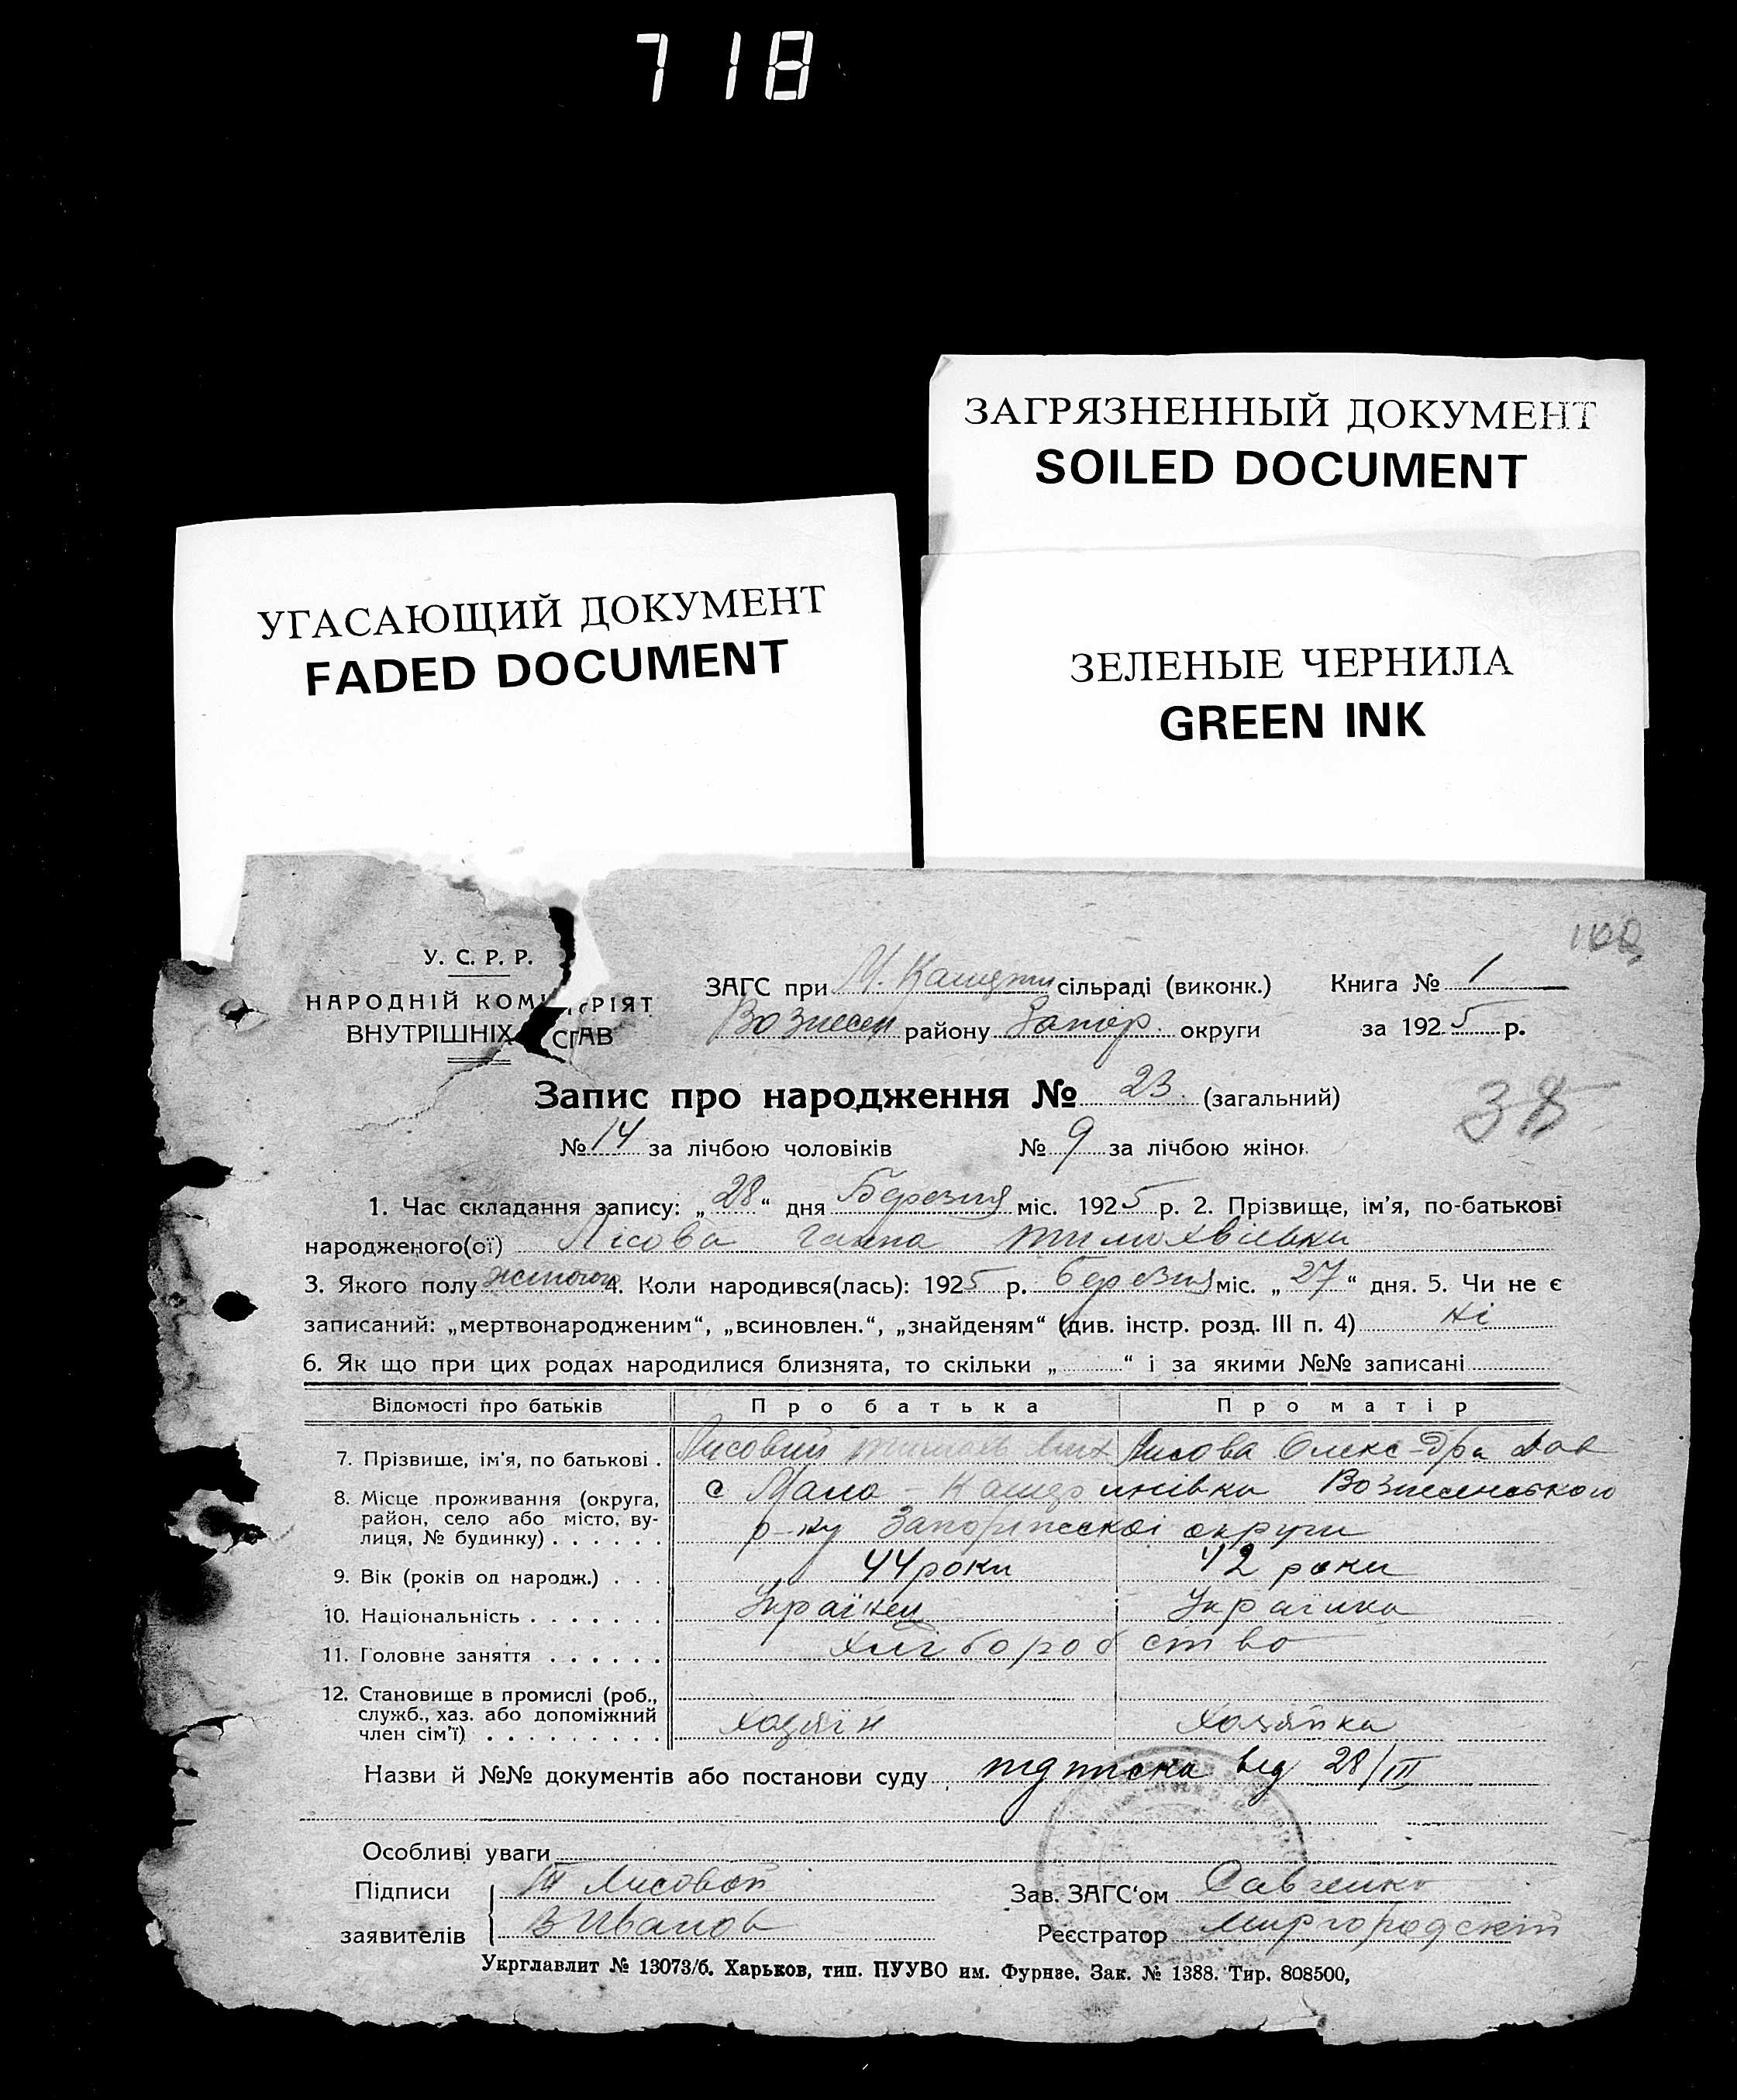 718
ЗАГРЯЗНЕННЫЙ ДОКУМЕНТ
SOILED DOCUMENT
УГАСАЮЩИЙ ДОКУМЕНТ
FADED DOCUMENT
ЗЕЛЕНЫЕ ЧЕРНИЛА
GREEN INK
У. С. Р. Р.
НАРОДНІЙ КОМ РІЯТ
ВНУТРІШНІХ СПАВ
ЗАГС при М. сільраді (виконк.) Книга № 1
Вознесен району Запор. округи за 1925 р.
Запис про народження № 23. (загальний)
38
№ 14 за лічбою чоловіків № 9 за лічбою жінок
1. Час складання запису: „28“ дня Березня міс. 1925 р. 2. Прізвище, ім'я, по-батькові
народженого(ої) Лісова Ганна
3. Якого полу жіночог 4. Коли народився(лась): 1925 р. березня міс. „27“ дня. 5. Чи не є
записаний: „мертвонародженим“, „всиновлен.“, „знайденям“ (див. інстр. розд. III п. 4) Ні
6. Як що при цих родах народилися близнята, то скільки „ “ і за якими №№ записані
Відомості про батьків Про батька Про матір
7. Прізвище, ім'я, по батькові . Лисовий Лисова Олекс-дра Дав
8. Місце проживання (округа, район, село або місто, вулиця, № будинку) . . . . . . с Мало - Вознесенського
р-ну Запоріжскоі округи
9. Вік (років од народж.) . . . 44 роки 42 роки
10. Національність . . . . . . . Українец Українка
11. Головне заняття . . . . . . хліборобство
12. Становище в промислі (роб., служб., хаз. або допоміжний член сім'ї) . . . . . . . . . хазяїн хазяйка
Назви й №№ документів або постанови суду підписка від 28/III
Особливі уваги
Підписи Лисовой Зав. ЗАГС'ом Савченко
заявителів В Иванов Реєстратор Миргородский
Укрглавлит № 13073/б. Харьков, тип. ПУУВО им. Фурнзе. Зак. № 1388. Тир. 808500,